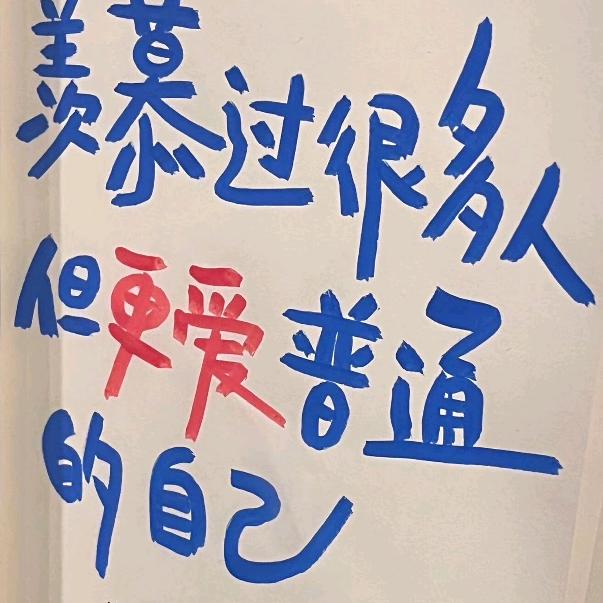 羡慕过很多人
但更爱普通
的自己